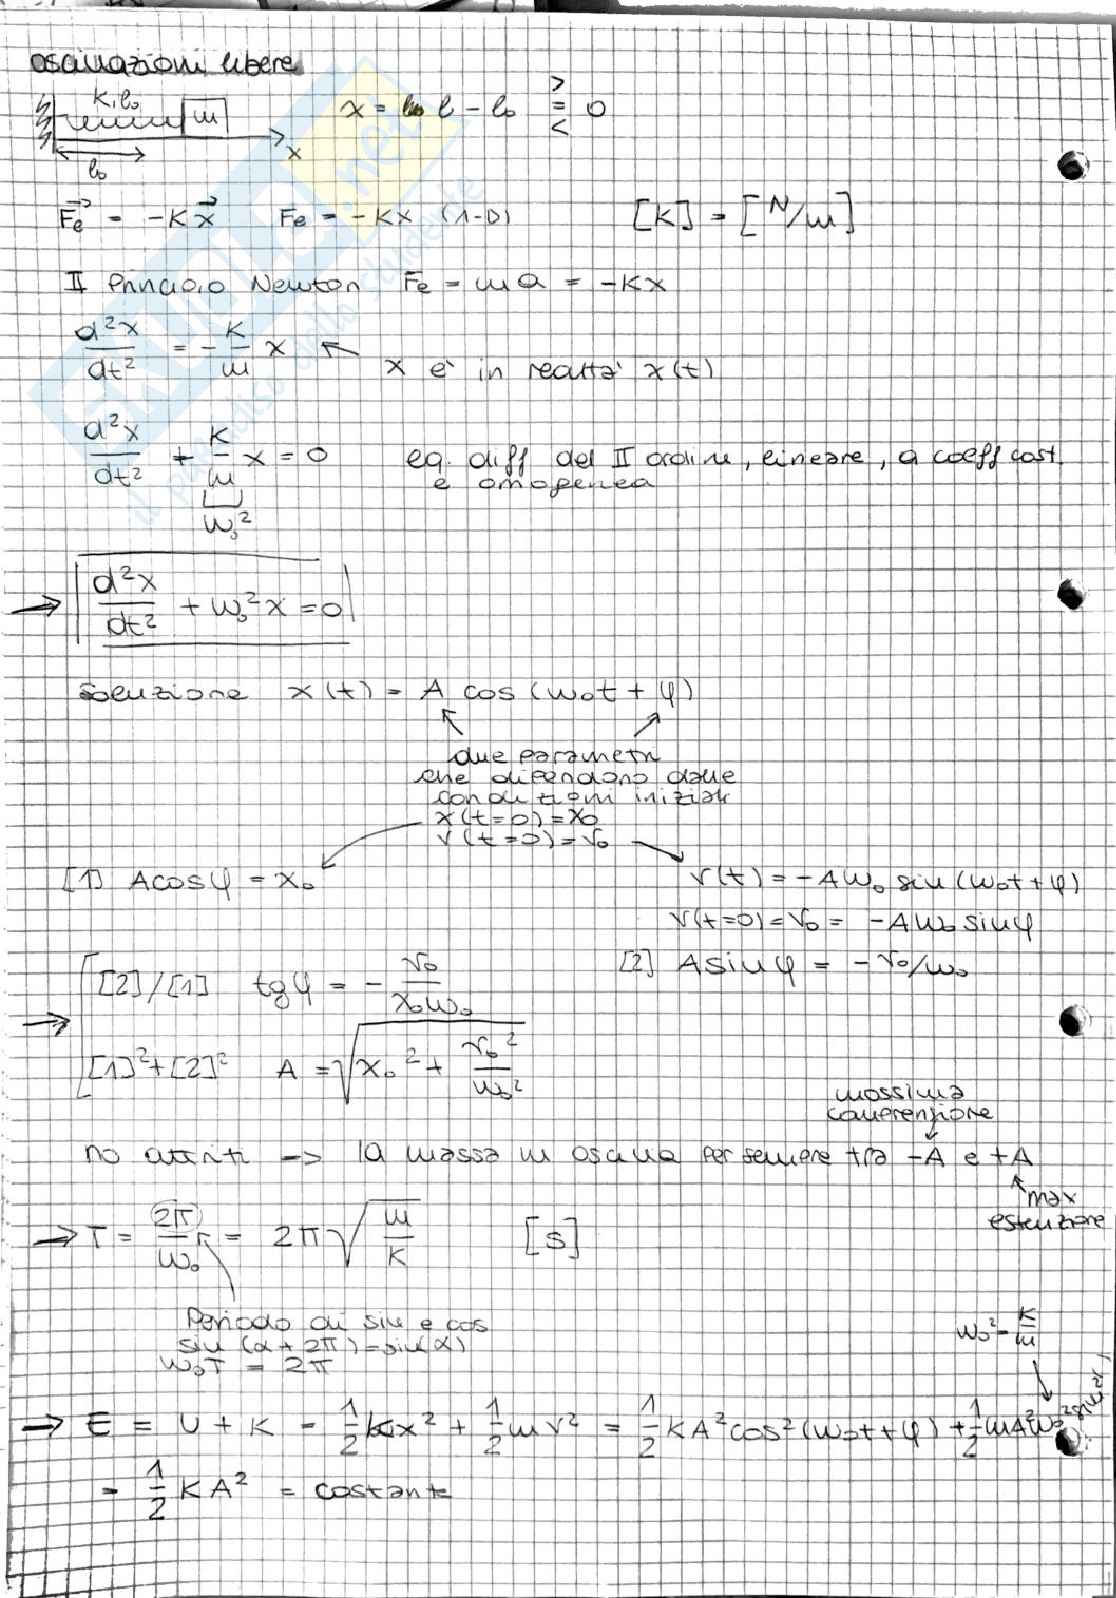 oscillazioni libere
K, l₀ m x = l - l₀ > = < 0
x
l₀
F⃗e = -Kx⃗ Fe = -Kx (1-D) [K] = [N/m]
II Principio Newton Fe = ma = -Kx
d²x/dt² = - K/m x ← x è in realtà x(t)
d²x/dt² + K/m x = 0 eq. diff del II ordine, lineare, a coeff cost.
e omogenea
ω₀²
→ d²x/dt² + ω₀²x = 0
Soluzione x(t) = A cos(ω₀t + φ)
due parametri
che dipendono dalle
condizioni iniziali
x(t=0) = x₀
v(t=0) = v₀
[1] Acosφ = x₀ v(t) = -Aω₀ sin(ω₀t + φ)
v(t=0) = v₀ = -Aω₀ sinφ
[2] Asinφ = -v₀/ω₀
→ [2]/[1] tgφ = - v₀/x₀ω₀
[1]²+[2]² A = √(x₀² + v₀²/ω₀²)
massima
compressione
no attriti -> la massa m oscilla per sempre tra -A e +A
max
estensione
→ T = 2π/ω₀ = 2π √(m/K) [s]
Periodo di sin e cos
sin(α + 2π) = sin(α)
ω₀T = 2π
ω₀² = K/m
→ E = U + K = 1/2 Kx² + 1/2 mv² = 1/2 KA²cos²(ω₀t+φ) + 1/2 mA²ω₀²
= 1/2 KA² = costante
SKUOLA.net
il paradiso dello studente